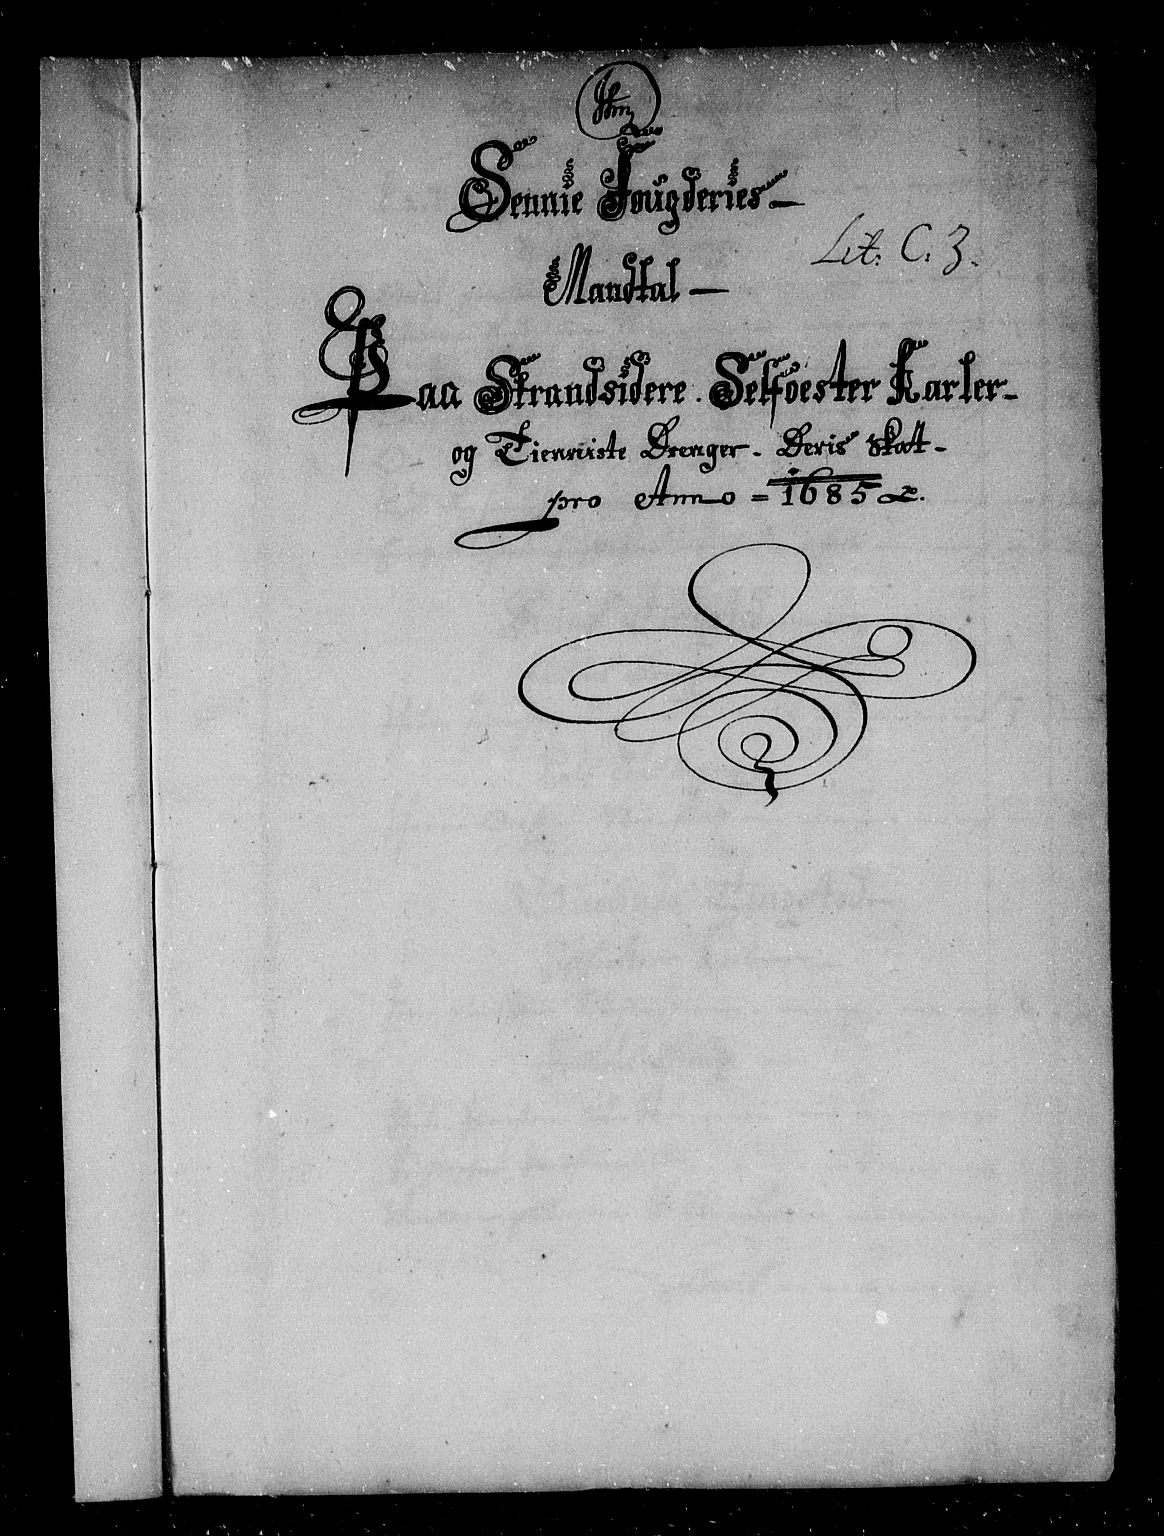 Sennie Fougderies
Lit: C: 3.
Mandtal
Paa Strandsidere. Selfoester Karler
og Tienniste Drenger. Deris Skatt
pro Anno = 1685